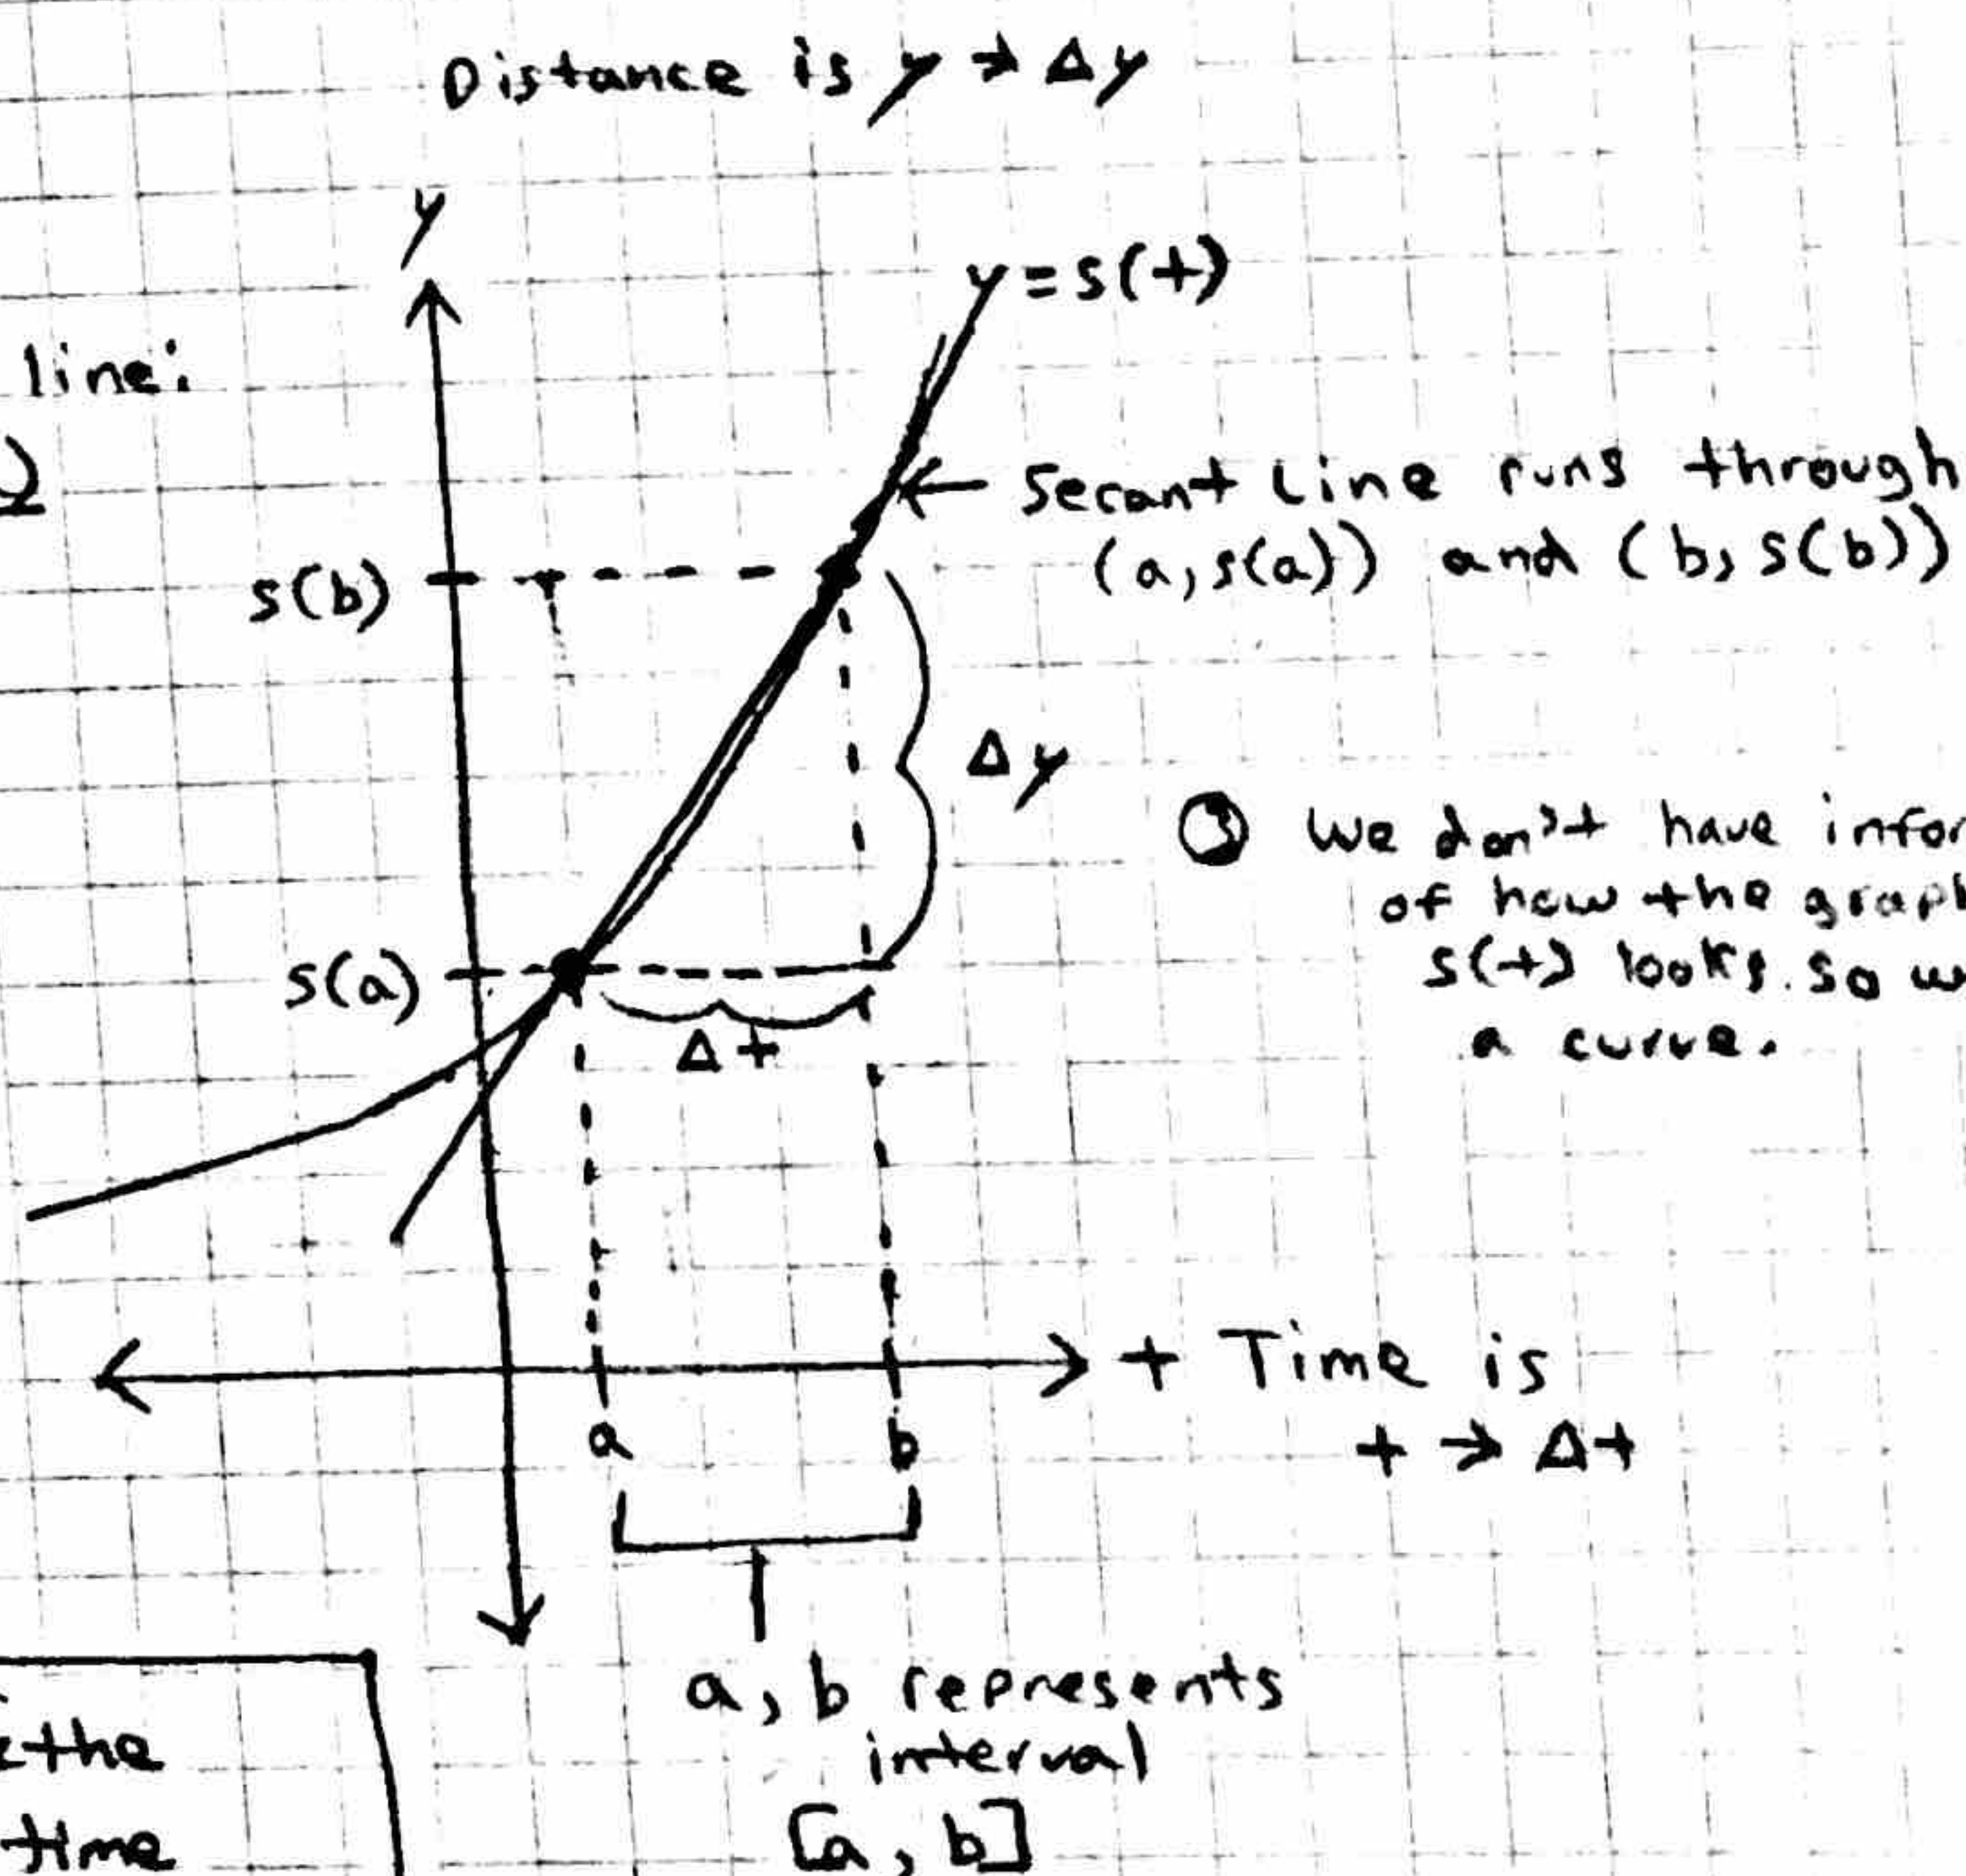 Distance is y → Δy
y
y = s(t)
line:
Secant Line runs through
(a, s(a)) and (b, s(b))
s(b)
Δy
③ We don't have
of how the
s(a)
s(t) looks. so
Δt
a curve.
t Time is
t → Δt
a
b
a, b represents
interval
[a, b]
the
time